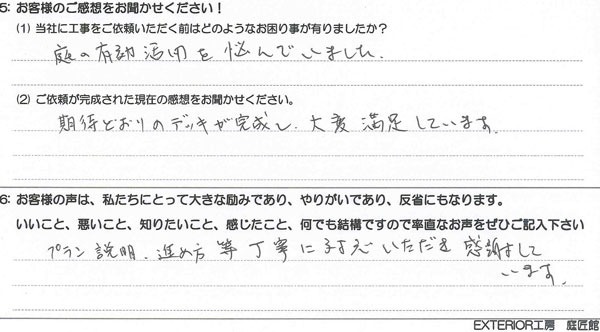 5: お客様のご感想をお聞かせください！
(1) 当社に工事をご依頼いただく前はどのようなお困り事が有りましたか？
庭の有効活用を悩んでいました.
(2) ご依頼が完成された現在の感想をお聞かせください。
期待どおりのデッキが完成し、大変満足しています.
6: お客様の声は、私たちにとって大きな励みであり、やりがいであり、反省にもなります。
いいこと、悪いこと、知りたいこと、感じたこと、何でも結構ですので率直なお声をぜひご記入下さい
プラン説明、進め方等丁寧に いただき感謝して
います.
EXTERIOR工房　庭匠館